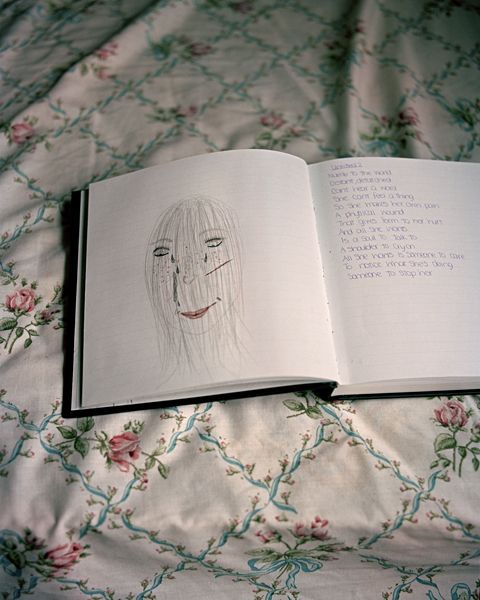 Untitled 2
Numb to the world
Distant, detatched
Can't hear a word
She can't feel a thing
So she makes her own pain
A physical wound
That gives form to her hurt
And all she wants
Is a soul to talk to
A shoulder to cry on
All she wants is someone to care
To notice what she's doing
Someone to stop her